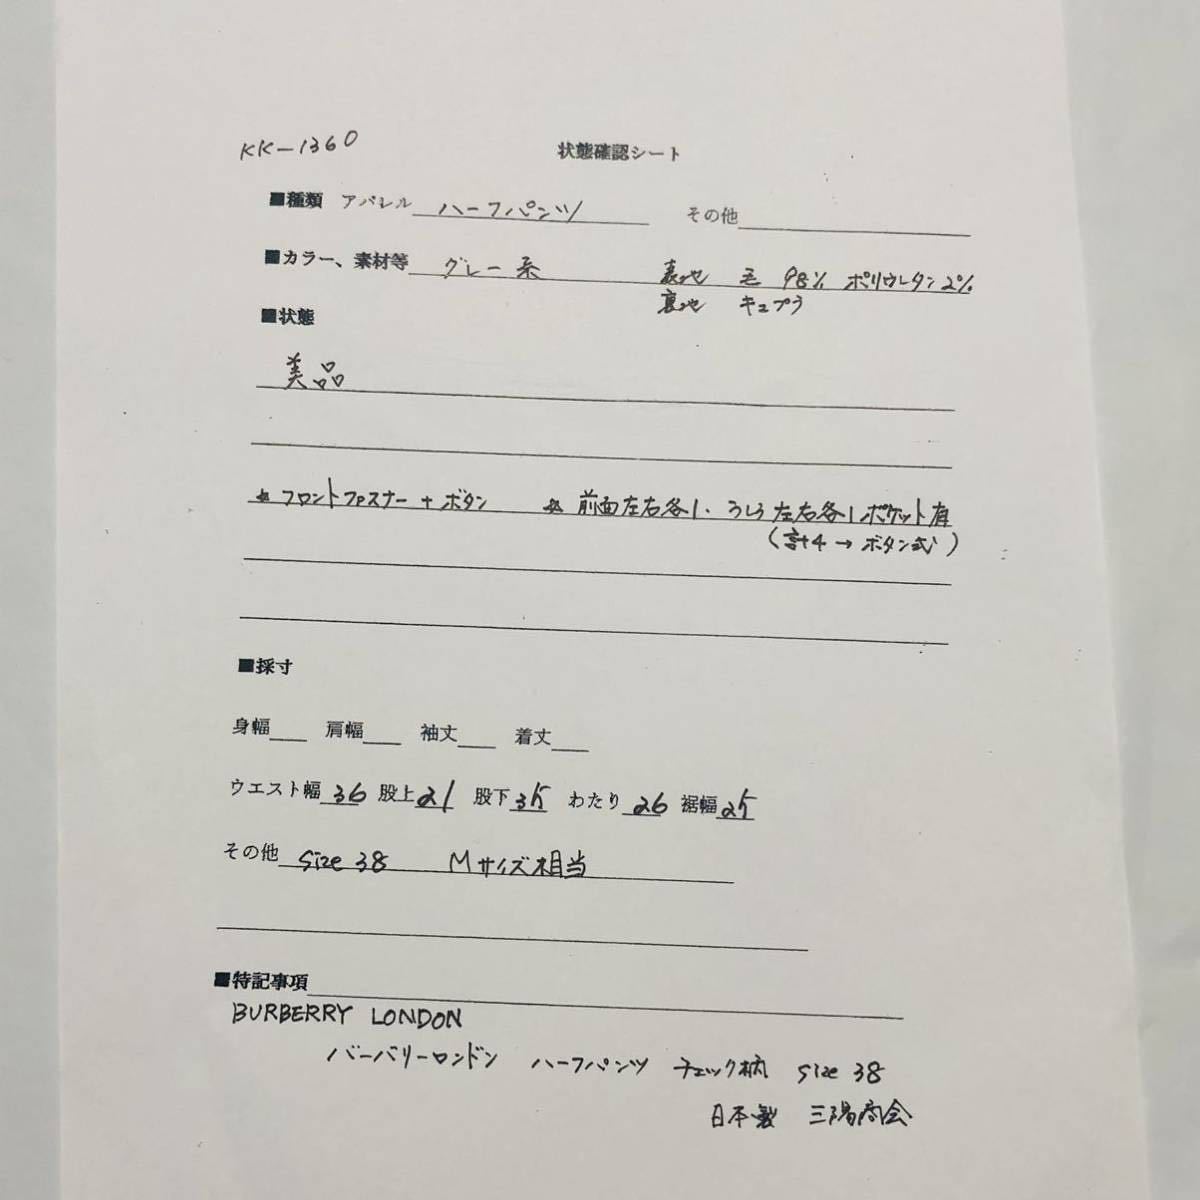 KK-1360 状態確認シート
■種類 アパレル ハーフパンツ その他
■カラー、素材等 グレー系 表地 毛 98% ポリウレタン2%
裏地 キュプラ
■状態
美品
* フロントファスナー + ボタン * 前面左右各1. うしろ左右各1ポケット有
(計4→ボタン式)
■採寸
身幅 肩幅 袖丈 着丈
ウエスト幅 36 股上 21 股下 35 わたり 26 裾幅 25
その他 size 38 Mサイズ相当
■特記事項
BURBERRY LONDON
バーバリーロンドン ハーフパンツ チェック柄 size 38
日本製 三陽商会